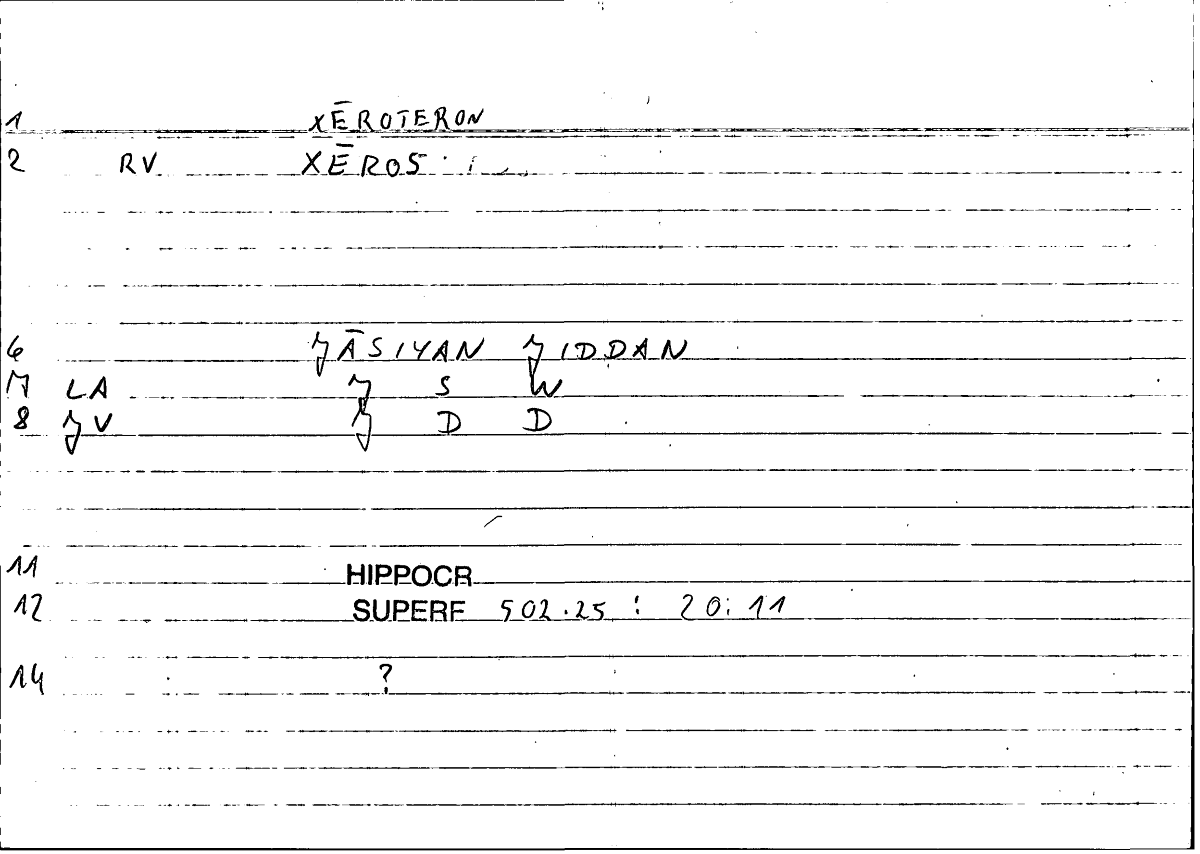 1 XĒROTERON
2 RV XĒROS
6 ƷĀSIYAN ƷIDDAN
7 LA Ʒ S W
8 ƷV Ʒ D D
11 HIPPOCR
12 SUPERF 502.25 : 20:11
14 ?